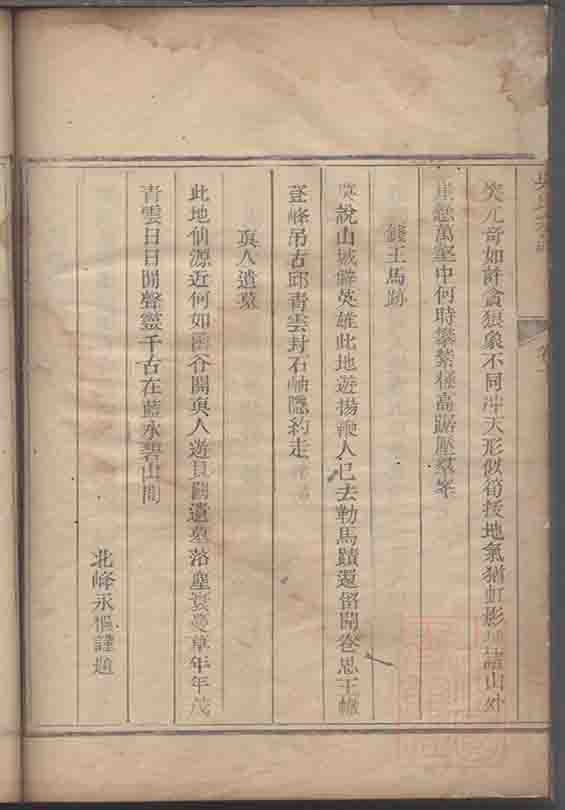 突兀奇如許貪狼象不同沖天形似筍接地氣猶虹影　諸山外
崖懸萬壑中何時攀絜極高踞壓羣峯
錢王馬跡
説山城僻英雄此地遊揚鞭人已去勒馬蹟還留開卷思王轍
登峰吊古邱青雲封石岫隱約走
真人遺墓
此地仙源近何如函谷關真人遊貝闕遺墓落塵寰蔓草年年茂
青雲日日閒聲靈千古在藍水碧山間
北峰永　謹題